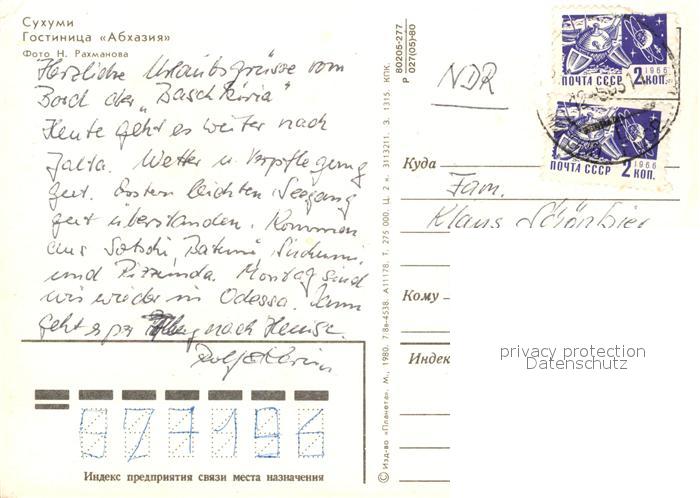 Сухуми
Гостиница «Абхазия»
Фото Н. Рахманова
Herzliche Urlaubsgrüsse vom
Bord der „Baschkiria"
Heute geht es weiter nach
Jalta. Wetter u. Verpflegung
gut. Ersten leichten Seegang
gut überstanden. Kommen
aus Sotschi, Batumi, Suchumi
und Pizunda. Montag sind
wir wieder in Odessa. Dann
geht es per nach Hause.
Rolf
977196
Индекс предприятия связи места назначения
80205-277
Р 027(05)-80
© Изд-во «Планета». М., 1980. 7.8в-4538. А11178. Т. 275 000. Ц. 2 к. 3113211. З. 1315. КПК.
NDR
1966
2 КОП.
ПОЧТА СССР
1966
2 КОП.
ПОЧТА СССР
Куда
Fam.
Klaus
Кому
Индекс
privacy protection
Datenschutz